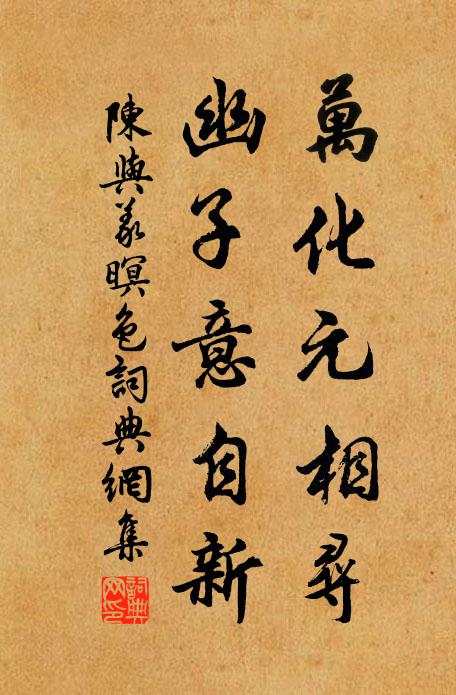 萬化元相尋
幽子意自新
陳與義暝色詞典網集
詞典網印